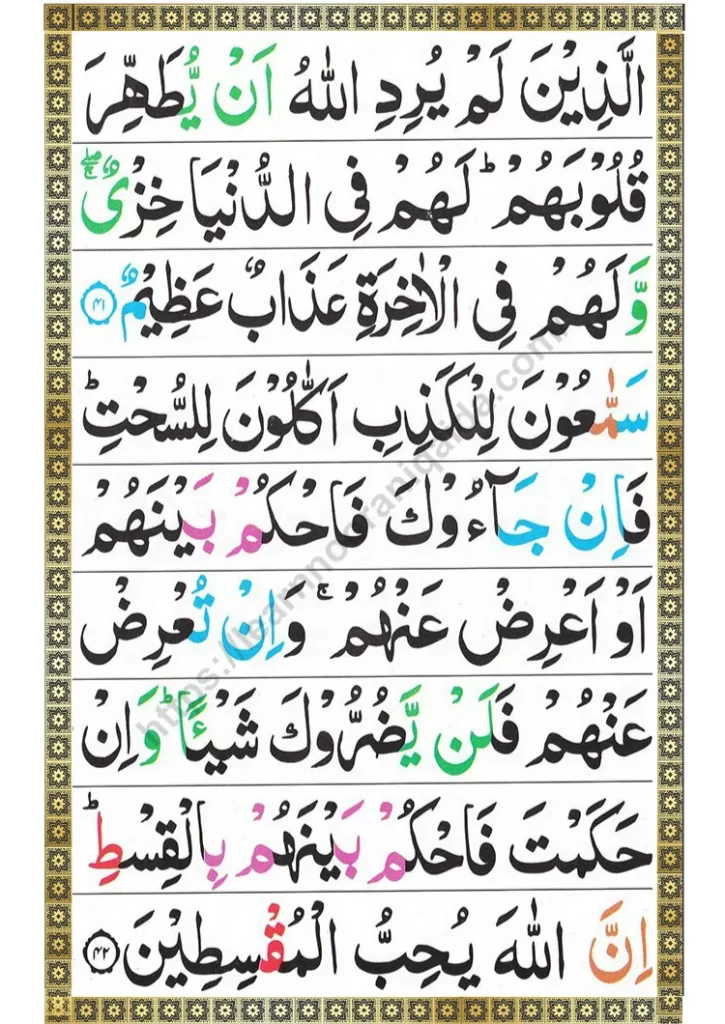 الَّذِيْنَ لَمْ يُرِدِ اللّٰهُ اَنْ يُّطَهِّرَ
قُلُوْبَهُمْ ؕ لَهُمْ فِى الدُّنْيَا خِزْىٌ ۚۖ
وَّلَهُمْ فِى الْاٰخِرَةِ عَذَابٌ عَظِيْمٌ ﴿۴۱﴾
سَمّٰعُوْنَ لِلْكَذِبِ اَكّٰلُوْنَ لِلسُّحْتِ ؕ
فَاِنْ جَآءُوْكَ فَاحْكُمْ بَيْنَهُمْ
اَوْ اَعْرِضْ عَنْهُمْ ۚ وَاِنْ تُعْرِضْ
عَنْهُمْ فَلَنْ يَّضُرُّوْكَ شَيْئًا ؕ وَاِنْ
حَكَمْتَ فَاحْكُمْ بَيْنَهُمْ بِالْقِسْطِ ؕ
اِنَّ اللّٰهَ يُحِبُّ الْمُقْسِطِيْنَ ﴿۴۲﴾
https://learnnooraniqaida.com/